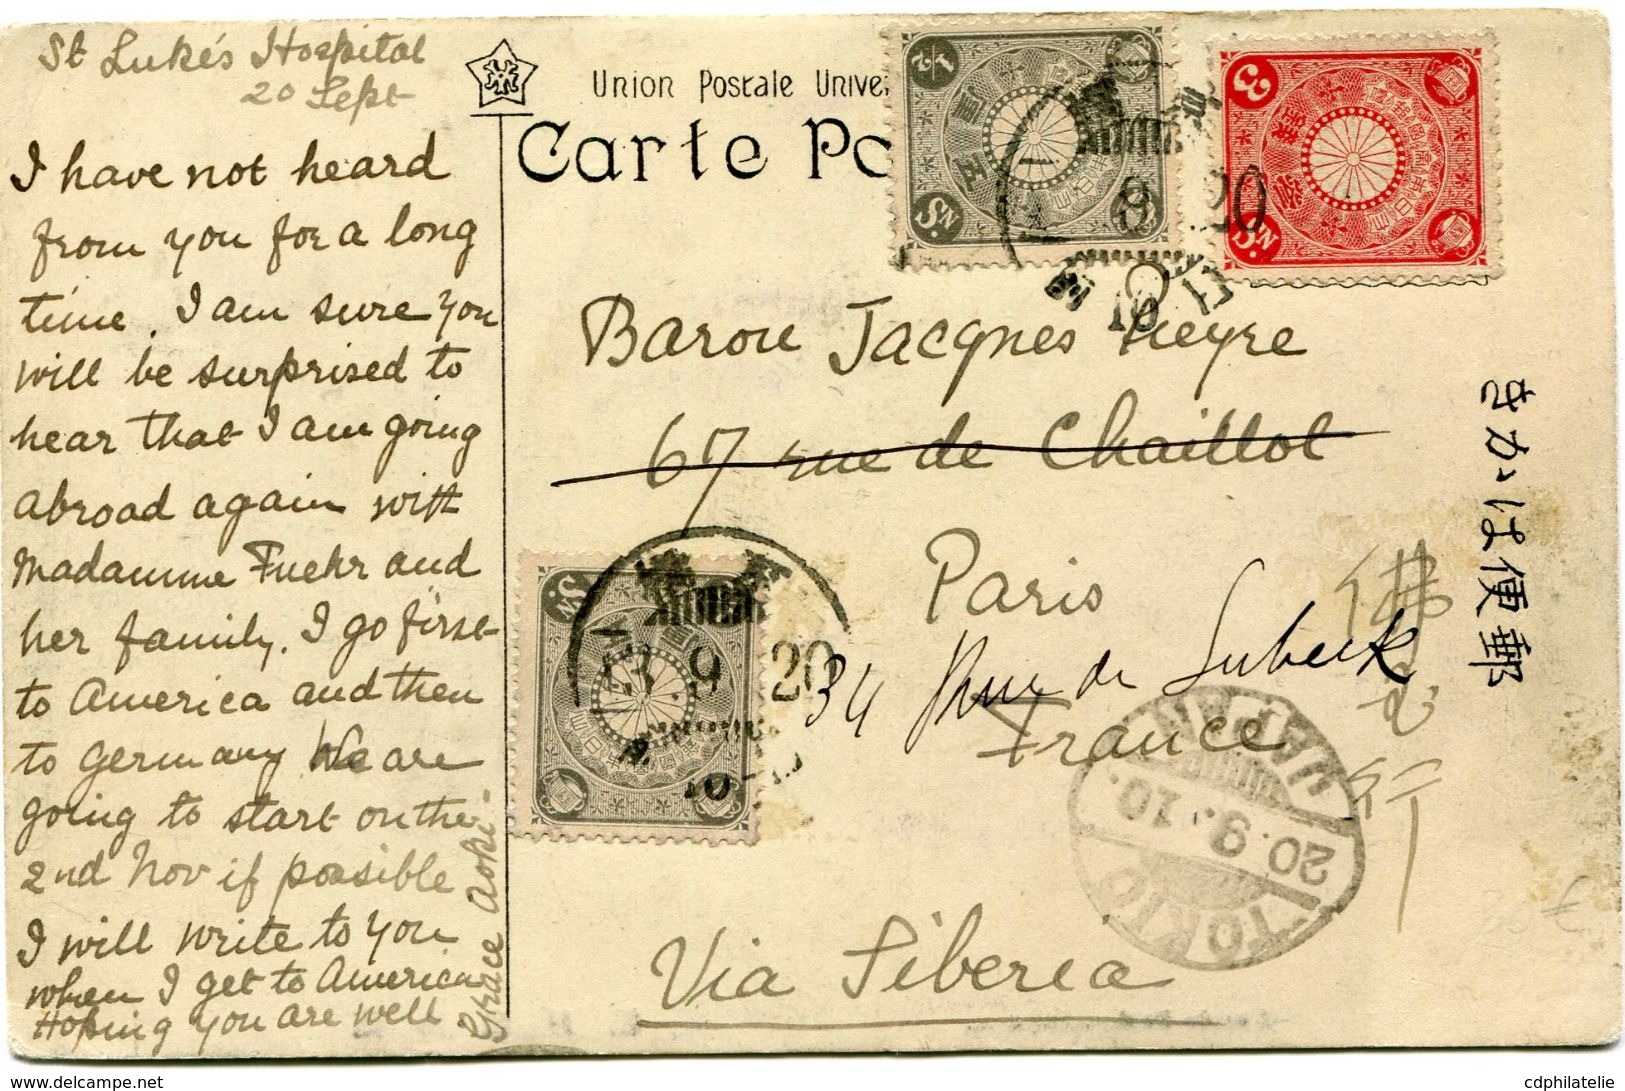 St Luke's Hospital
20 Sept
I have not heard
from you for a long
time. I am sure you
will be surprised to
hear that I am going
abroad again with
Madamme Fuehr and
her family. I go first
to America and then
to Germany We are
going to start on the
2nd Nov if possible
I will write to you
when I get to America
Hoping you are well
Grace Aoki
Union Postale Univer
Carte Po
1/2
Sn.
3
Sn.
20
Baron Jacques
67 rue de Chaillot
Paris
34 Rue de Lubeck
France
Via Siberia
きかは便郵
Sn.
9 20
TOKIO
20.9.10.
JAPAN
30 €
cdphilatelie